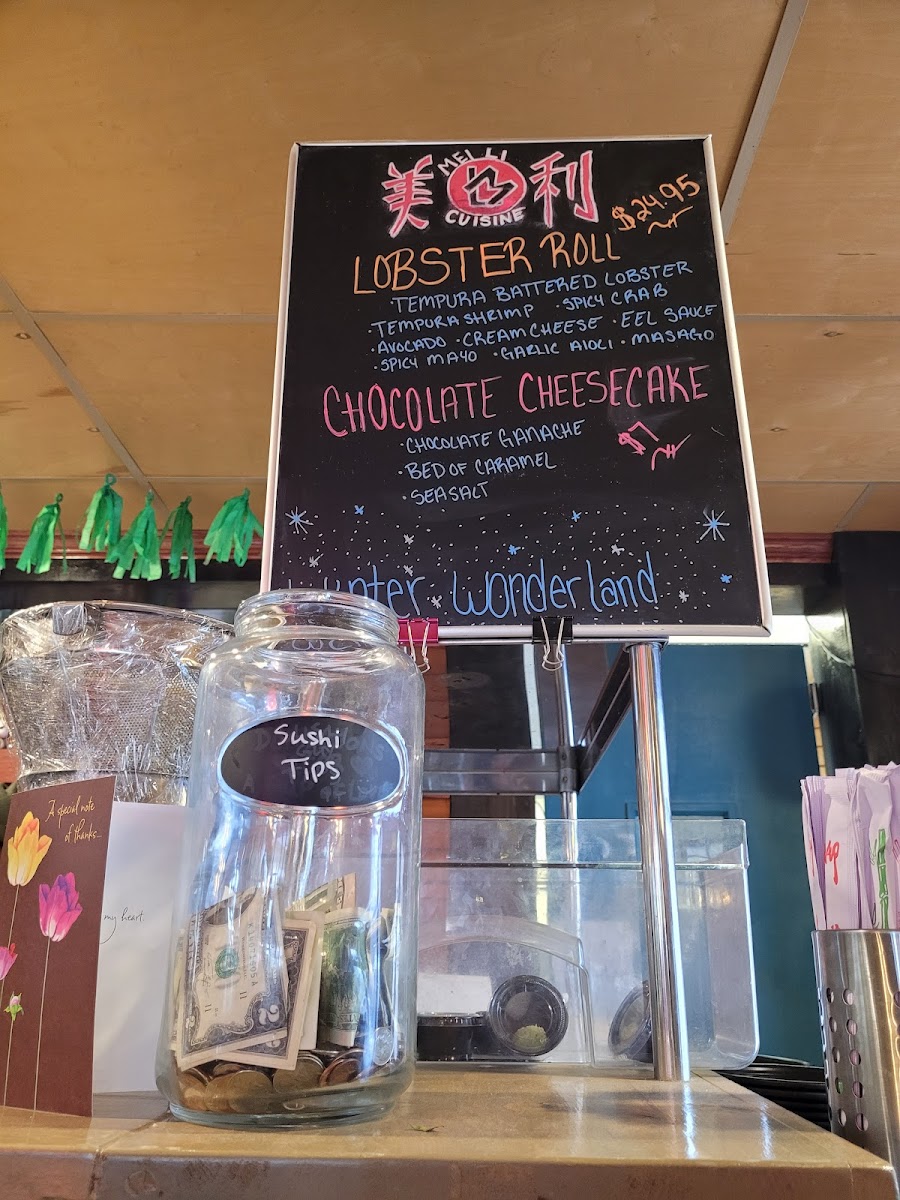 美 MEI LI 利
CUISINE
$24.95
LOBSTER ROLL
TEMPURA BATTERED LOBSTER
·TEMPURA SHRIMP ·SPICY CRAB
·AVOCADO ·CREAM CHEESE ·EEL SAUCE
·SPICY MAYO ·GARLIC AIOLI ·MASAGO
CHOCOLATE CHEESECAKE
$7
·CHOCOLATE GANACHE
·BED OF CARAMEL
·SEA SALT
Winter Wonderland
Sushi
Tips
A special note
of thanks...
my heart.
2